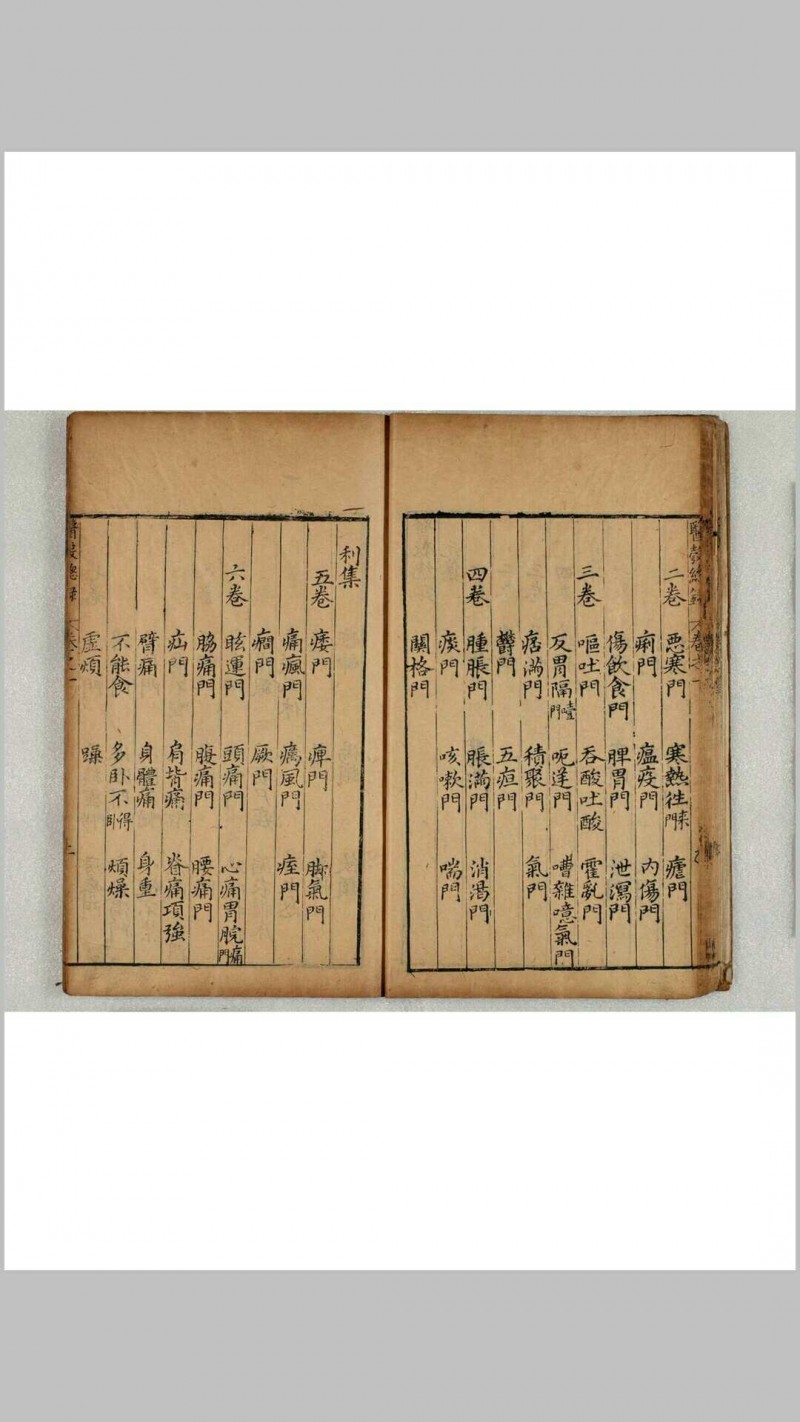 二卷 惡寒門 寒熱往來門 瘧門
痢門 瘟疫門 內傷門
傷飲食門 脾胃門 泄瀉門
三卷 嘔吐門 吞酸吐酸 霍亂門
反胃隔噎門 呃逆門 嘈雜噫氣門
痞滿門 積聚門 氣門
鬱門 五疸門
四卷 腫脹門 脹滿門 消渴門
痰門 咳嗽門 喘門
關格門
利集
五卷 痿門 痺門 脚氣門
痛瘋門 癘風門 痓門
癇門 厥門
六卷 眩運門 頭痛門 心痛胃脘痛門
脇痛門 腹痛門 腰痛門
疝門 肩背痛 脊痛項強
臂痛 身體痛 身重
不能食 多卧不得卧 煩燥
虛煩 躁